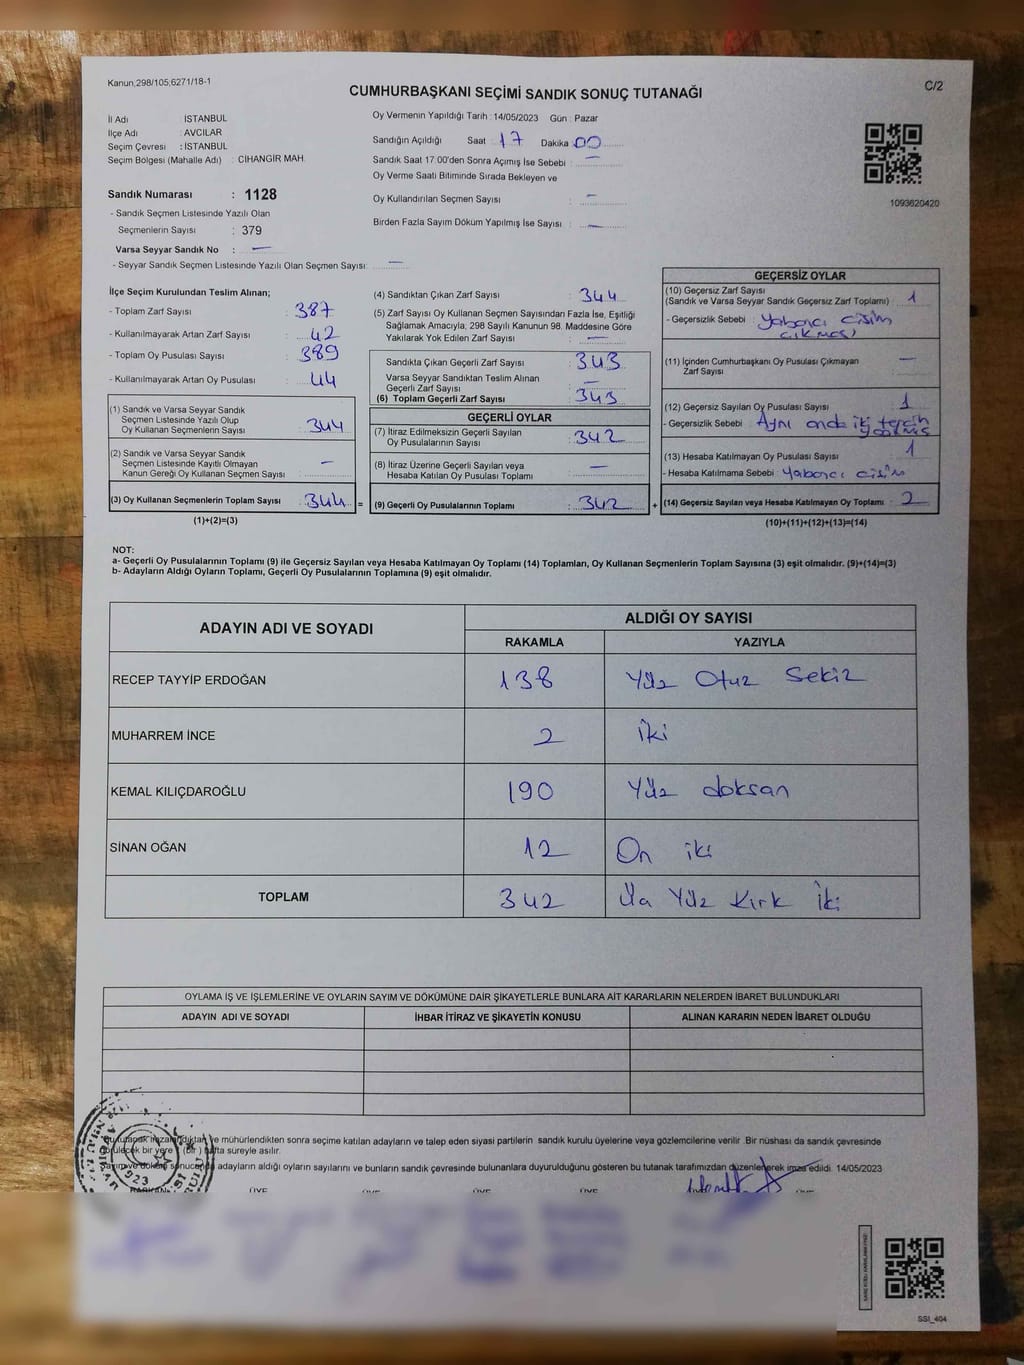 Kanun,298/105,6271/18-1
C/2
CUMHURBAŞKANI SEÇİMİ SANDIK SONUÇ TUTANAĞI
İl Adı İSTANBUL
İlçe Adı : AVCILAR
Seçim Çevresi : İSTANBUL
Seçim Bölgesi (Mahalle Adı) : CİHANGİR MAH.
Sandık Numarası : 1128
- Sandık Seçmen Listesinde Yazılı Olan
Seçmenlerin Sayısı : 379
Varsa Seyyar Sandık No : —
- Seyyar Sandık Seçmen Listesinde Yazılı Olan Seçmen Sayısı: —
Oy Vermenin Yapıldığı Tarih : 14/05/2023 Gün : Pazar
Sandığın Açıldığı Saat : 17 Dakika : 00
Sandık Saat 17:00'den Sonra Açımış İse Sebebi : —
Oy Verme Saati Bitiminde Sırada Bekleyen ve
Oy Kullandırılan Seçmen Sayısı : —
Birden Fazla Sayım Döküm Yapılmış İse Sayısı : —
1093620420
İlçe Seçim Kurulundan Teslim Alınan;
- Toplam Zarf Sayısı : 387
- Kullanılmayarak Artan Zarf Sayısı : 42
- Toplam Oy Pusulası Sayısı : 389
- Kullanılmayarak Artan Oy Pusulası : 44
(1) Sandık ve Varsa Seyyar Sandık
Seçmen Listesinde Yazılı Olup
Oy Kullanan Seçmenlerin Sayısı : 344
(2) Sandık ve Varsa Seyyar Sandık
Seçmen Listesinde Kayıtlı Olmayan
Kanun Gereği Oy Kullanan Seçmen Sayısı : —
(3) Oy Kullanan Seçmenlerin Toplam Sayısı : 344 =
(1)+(2)=(3)
(4) Sandıktan Çıkan Zarf Sayısı : 344
(5) Zarf Sayısı Oy Kullanan Seçmen Sayısından Fazla İse, Eşitliği
Sağlamak Amacıyla, 298 Sayılı Kanunun 98. Maddesine Göre
Yakılarak Yok Edilen Zarf Sayısı : —
Sandıkta Çıkan Geçerli Zarf Sayısı : 343
Varsa Seyyar Sandıktan Teslim Alınan
Geçerli Zarf Sayısı : —
(6) Toplam Geçerli Zarf Sayısı : 343
GEÇERLİ OYLAR
(7) İtiraz Edilmeksizin Geçerli Sayılan
Oy Pusulalarının Sayısı : 342
(8) İtiraz Üzerine Geçerli Sayılan veya
Hesaba Katılan Oy Pusulası Toplamı : —
(9) Geçerli Oy Pusulalarının Toplamı : 342 +
GEÇERSİZ OYLAR
(10) Geçersiz Zarf Sayısı
(Sandık ve Varsa Seyyar Sandık Geçersiz Zarf Toplamı) : 1
- Geçersizlik Sebebi : Yabancı cisim
çıkması
(11) İçinden Cumhurbaşkanı Oy Pusulası Çıkmayan
Zarf Sayısı : —
(12) Geçersiz Sayılan Oy Pusulası Sayısı : 1
- Geçersizlik Sebebi : Aynı anda iki tercih
(13) Hesaba Katılmayan Oy Pusulası Sayısı : 1
- Hesaba Katılmama Sebebi : Yabancı cisim
(14) Geçersiz Sayılan veya Hesaba Katılmayan Oy Toplamı : 2
(10)+(11)+(12)+(13)=(14)
NOT:
a- Geçerli Oy Pusulalarının Toplamı (9) ile Geçersiz Sayılan veya Hesaba Katılmayan Oy Toplamı (14) Toplamları, Oy Kullanan Seçmenlerin Toplam Sayısına (3) eşit olmalıdır. (9)+(14)=(3)
b- Adayların Aldığı Oyların Toplamı, Geçerli Oy Pusulalarının Toplamına (9) eşit olmalıdır.
ADAYIN ADI VE SOYADI
ALDIĞI OY SAYISI
RAKAMLA YAZIYLA
RECEP TAYYİP ERDOĞAN 138 Yüz Otuz Sekiz
MUHARREM İNCE 2 İki
KEMAL KILIÇDAROĞLU 190 Yüz doksan
SİNAN OĞAN 12 On iki
TOPLAM 342 Üç Yüz Kırk İki
OYLAMA İŞ VE İŞLEMLERİNE VE OYLARIN SAYIM VE DÖKÜMÜNE DAİR ŞİKAYETLERLE BUNLARA AİT KARARLARIN NELERDEN İBARET BULUNDUKLARI
ADAYIN ADI VE SOYADI İHBAR İTİRAZ VE ŞİKAYETİN KONUSU ALINAN KARARIN NEDEN İBARET OLDUĞU
ve mühürlendikten sonra seçime katılan adayların ve talep eden siyasi partilerin sandık kurulu üyelerine veya gözlemcilerine verilir. Bir nüshası da sandık çevresinde
bir yere (bir) hafta süreyle asılır.
adayların aldığı oyların sayılarını ve bunların sandık çevresinde bulunanlara duyurulduğunu gösteren bu tutanak tarafımızdan düzenlenerek imza edildi. 14/05/2023
BAŞKAN ÜYE ÜYE ÜYE ÜYE ÜYE
SSİ_404